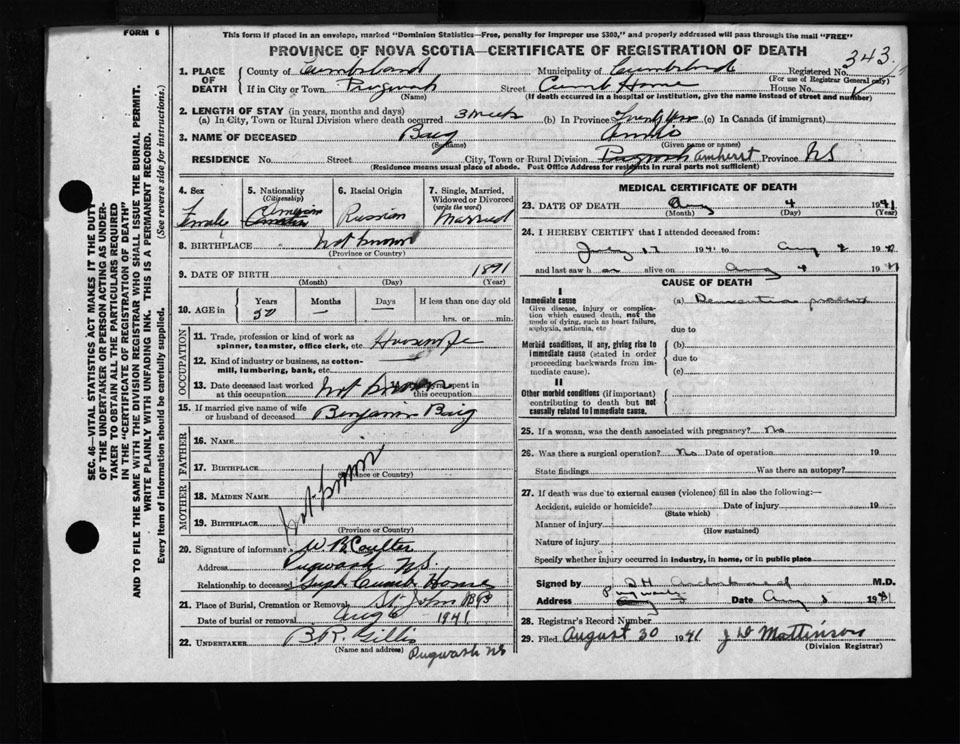 FORM 6
This form if placed in an envelope, marked "Dominion Statistics—Free, penalty for improper use $300," and properly addressed will pass through the mail "FREE"
PROVINCE OF NOVA SCOTIA—CERTIFICATE OF REGISTRATION OF DEATH
343
1. PLACE OF DEATH County of Cumberland Municipality of Cumberland Registered No.
(For use of Registrar General only)
If in City or Town Pugwash Street Cumb Home House No.
(Name) (If death occurred in a hospital or institution, give the name instead of street and number)
2. LENGTH OF STAY (in years, months and days)
(a) In City, Town or Rural Division where death occurred 3 weeks (b) In Province Twenty yrs (c) In Canada (if immigrant)
3. NAME OF DECEASED Baig Annie
(Surname) (Given name or names)
RESIDENCE No. Street City, Town or Rural Division Pugwash Amherst Province NS
(Residence means usual place of abode. Post Office Address for residents in rural parts not sufficient)
4. Sex Female
5. Nationality (Citizenship)
6. Racial Origin Russian
7. Single, Married, Widowed or Divorced (write the word) Married
8. BIRTHPLACE Not known
(Province or Country)
9. DATE OF BIRTH 1891
(Month) (Day) (Year)
10. AGE in Years 50 Months — Days — If less than one day old hrs. or min.
OCCUPATION
11. Trade, profession or kind of work as spinner, teamster, office clerk, etc. Housewife
12. Kind of industry or business, as cotton-mill, lumbering, bank, etc.
13. Date deceased last worked at this occupation Not known spent in this occupation
15. If married give name of wife or husband of deceased Benjamin Baig
FATHER
16. NAME
17. BIRTHPLACE
(Province or Country)
Not known
MOTHER
18. MAIDEN NAME
19. BIRTHPLACE
(Province or Country)
20. Signature of informant W. R. Coulter
Address Pugwash N.S.
Relationship to deceased Supt Cumb Home
21. Place of Burial, Cremation or Removal St John NB
Date of burial or removal Aug 6 1941
22. UNDERTAKER B. R. Gillis
(Name and address) Pugwash NS
MEDICAL CERTIFICATE OF DEATH
23. DATE OF DEATH Aug 4 1941
(Month) (Day) (Year)
24. I HEREBY CERTIFY that I attended deceased from:
July 17 1941 to Aug 194
and last saw h er alive on Aug 4 194
CAUSE OF DEATH
I
Immediate cause
Give disease, injury or complication which caused death, not the mode of dying, such as heart failure, asphyxia, asthenia, etc
(a) Dementia
due to
Morbid conditions, if any, giving rise to immediate cause (stated in order proceeding backwards from immediate cause).
(b)
due to
(c)
II
Other morbid conditions (if important) contributing to death but not causally related to immediate cause.
25. If a woman, was the death associated with pregnancy? No
26. Was there a surgical operation? No Date of operation 19
State findings Was there an autopsy?
27. If death was due to external causes (violence) fill in also the following:—
Accident, suicide or homicide? Date of injury 19
(State which)
Manner of injury
(How sustained)
Nature of injury
Specify whether injury occurred in industry, in home, or in public place
Signed by M.D.
Address Pugwash Date Aug 1941
28. Registrar's Record Number
29. Filed August 30 1941 J D Mattinson
(Division Registrar)
SEC. 46—VITAL STATISTICS ACT MAKES IT THE DUTY
OF THE UNDERTAKER OR PERSON ACTING AS UNDER-
TAKER TO OBTAIN ALL THE PARTICULARS REQUIRED
IN THE "CERTIFICATE OF REGISTRATION OF DEATH"
AND TO FILE THE SAME WITH THE DIVISION REGISTRAR WHO SHALL ISSUE THE BURIAL PERMIT.
WRITE PLAINLY WITH UNFADING INK. THIS IS A PERMANENT RECORD.
Every item of information should be carefully supplied. (See reverse side for instructions.)